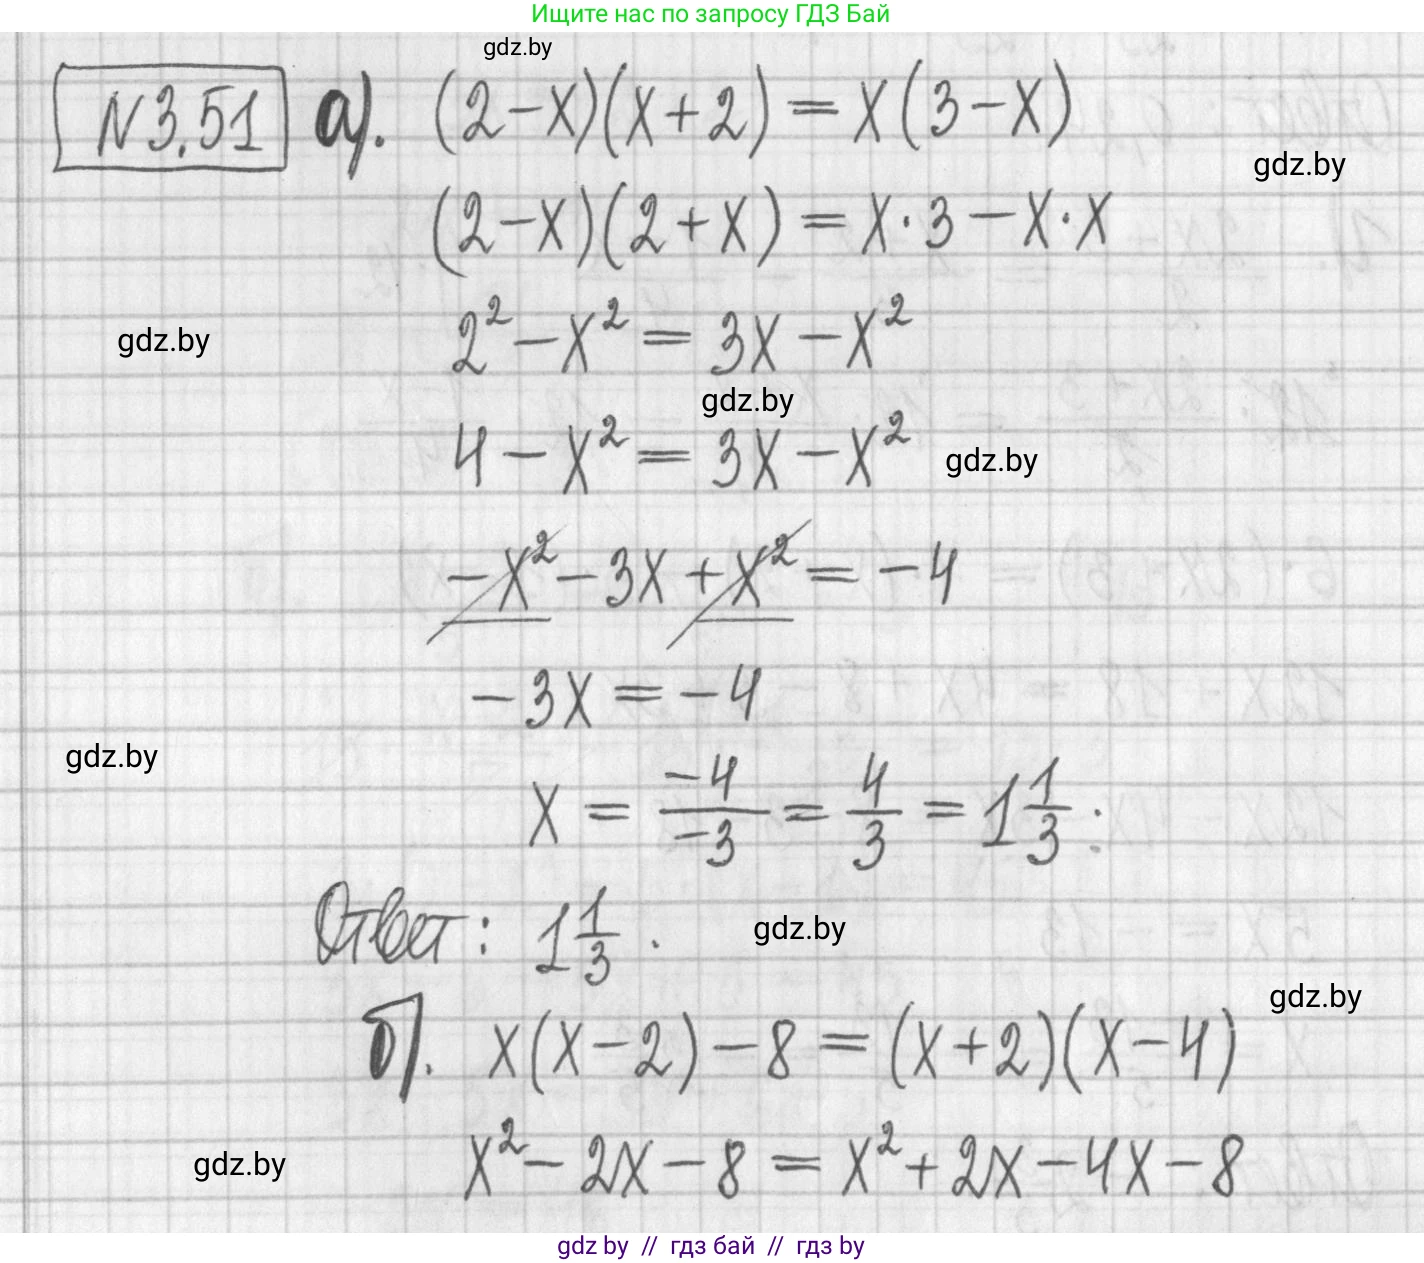 Ищите нас по запросу ГДЗ Бай
gdz.by
N3.51 а). (2-x)(x+2) = x(3-x)
gdz.by
(2-x)(2+x) = x·3 - x·x
2² - x² = 3x - x²
gdz.by
gdz.by
4 - x² = 3x - x²
gdz.by
-x² - 3x + x² = -4
-3x = -4
gdz.by
x = -4/-3 = 4/3 = 1 1/3 :
Ответ: 1 1/3 .
gdz.by
gdz.by
б). x(x-2) - 8 = (x+2)(x-4)
x² - 2x - 8 = x² + 2x - 4x - 8
gdz.by
gdz by // гдз бай // гдз by